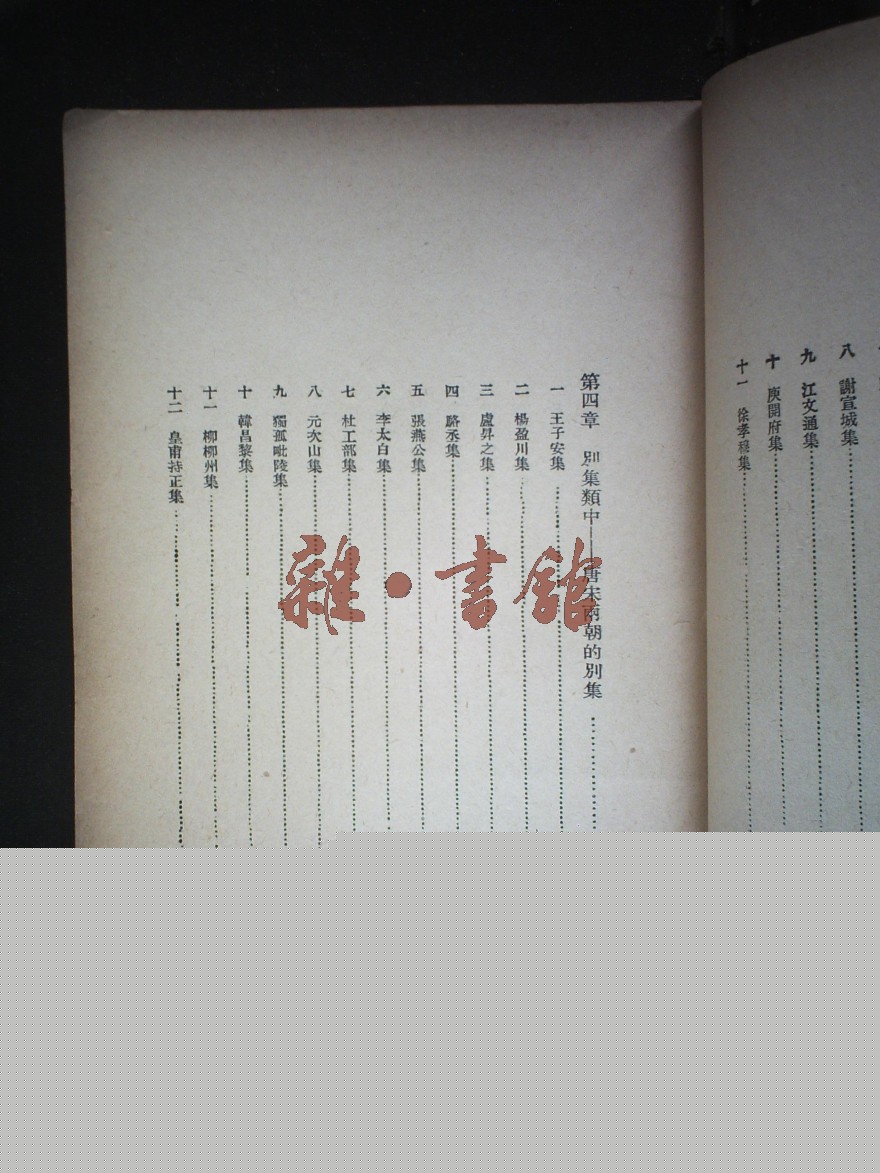 八 謝宣城集
九 江文通集
十 庾開府集
十一 徐孝穆集
第四章 別集類中——唐宋兩朝的別集
一 王子安集
二 楊盈川集
三 盧昇之集
四 駱丞集
五 張燕公集
六 李太白集
七 杜工部集
八 元次山集
九 獨孤毗陵集
十 韓昌黎集
十一 柳柳州集
十二 皇甫持正集
雜·書館